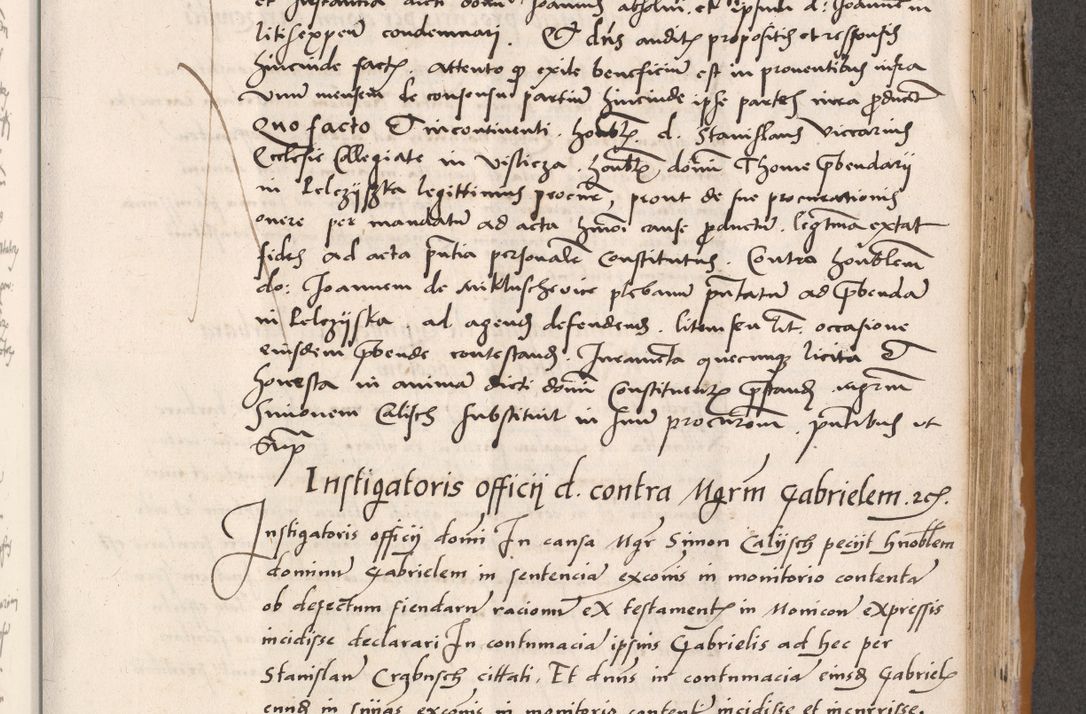 et instancia dicti domini Joannis absolvi et ipsum d: Joannem in
litis expen condemnari. Et dns auditis propositis et responsis
hincinde fact. Attento q exile beneficium est in proventibus infra
unum mensem de consensu partium hincinde ipse partes
Quo facto Et incontinenti. honbl. d. Stanislaus Viccarius
Ecclesie Collegiate in Vislicza. honbl domi Thome pbendarij
in Pelczÿska legittimus procur, prout de sue procurationis
onere per mandatum ad acta hmoi cause productum. legitima extat
fides ad acta pntia personaliter Constitutus. Contra honblem
do: Joannem de Mikluschevice plebanum pntatum ad pbendam
in Pelczÿska ad agend defendend. litem seu lit. occasione
eiusdem pbende contestand. Juramenta quecumque licita Et
honesta in animam dicti domi Constituent prestand. Mgrm
Simonem Calisch substituit in suum procurorem. pntibus ut
Sup
Instigatoris officij d. contra Mgrm Gabrielem. 2c.
Instigatoris officij domi In causa Mgr Simon Calÿsch peciit hnoblem
dominum Gabrielem in sentenciam excomis in monitorio contentam
ob defectum fiendarum racionum ex testament in Monicon expressis
incidisse declarari In contumaciam ipsius Gabrielis ad hec per
Stanislaum cittati. Et dnus in contumaciam eiusd Gabriel
eund in suprias excomis in monitorio content incidisse et incurrisse.